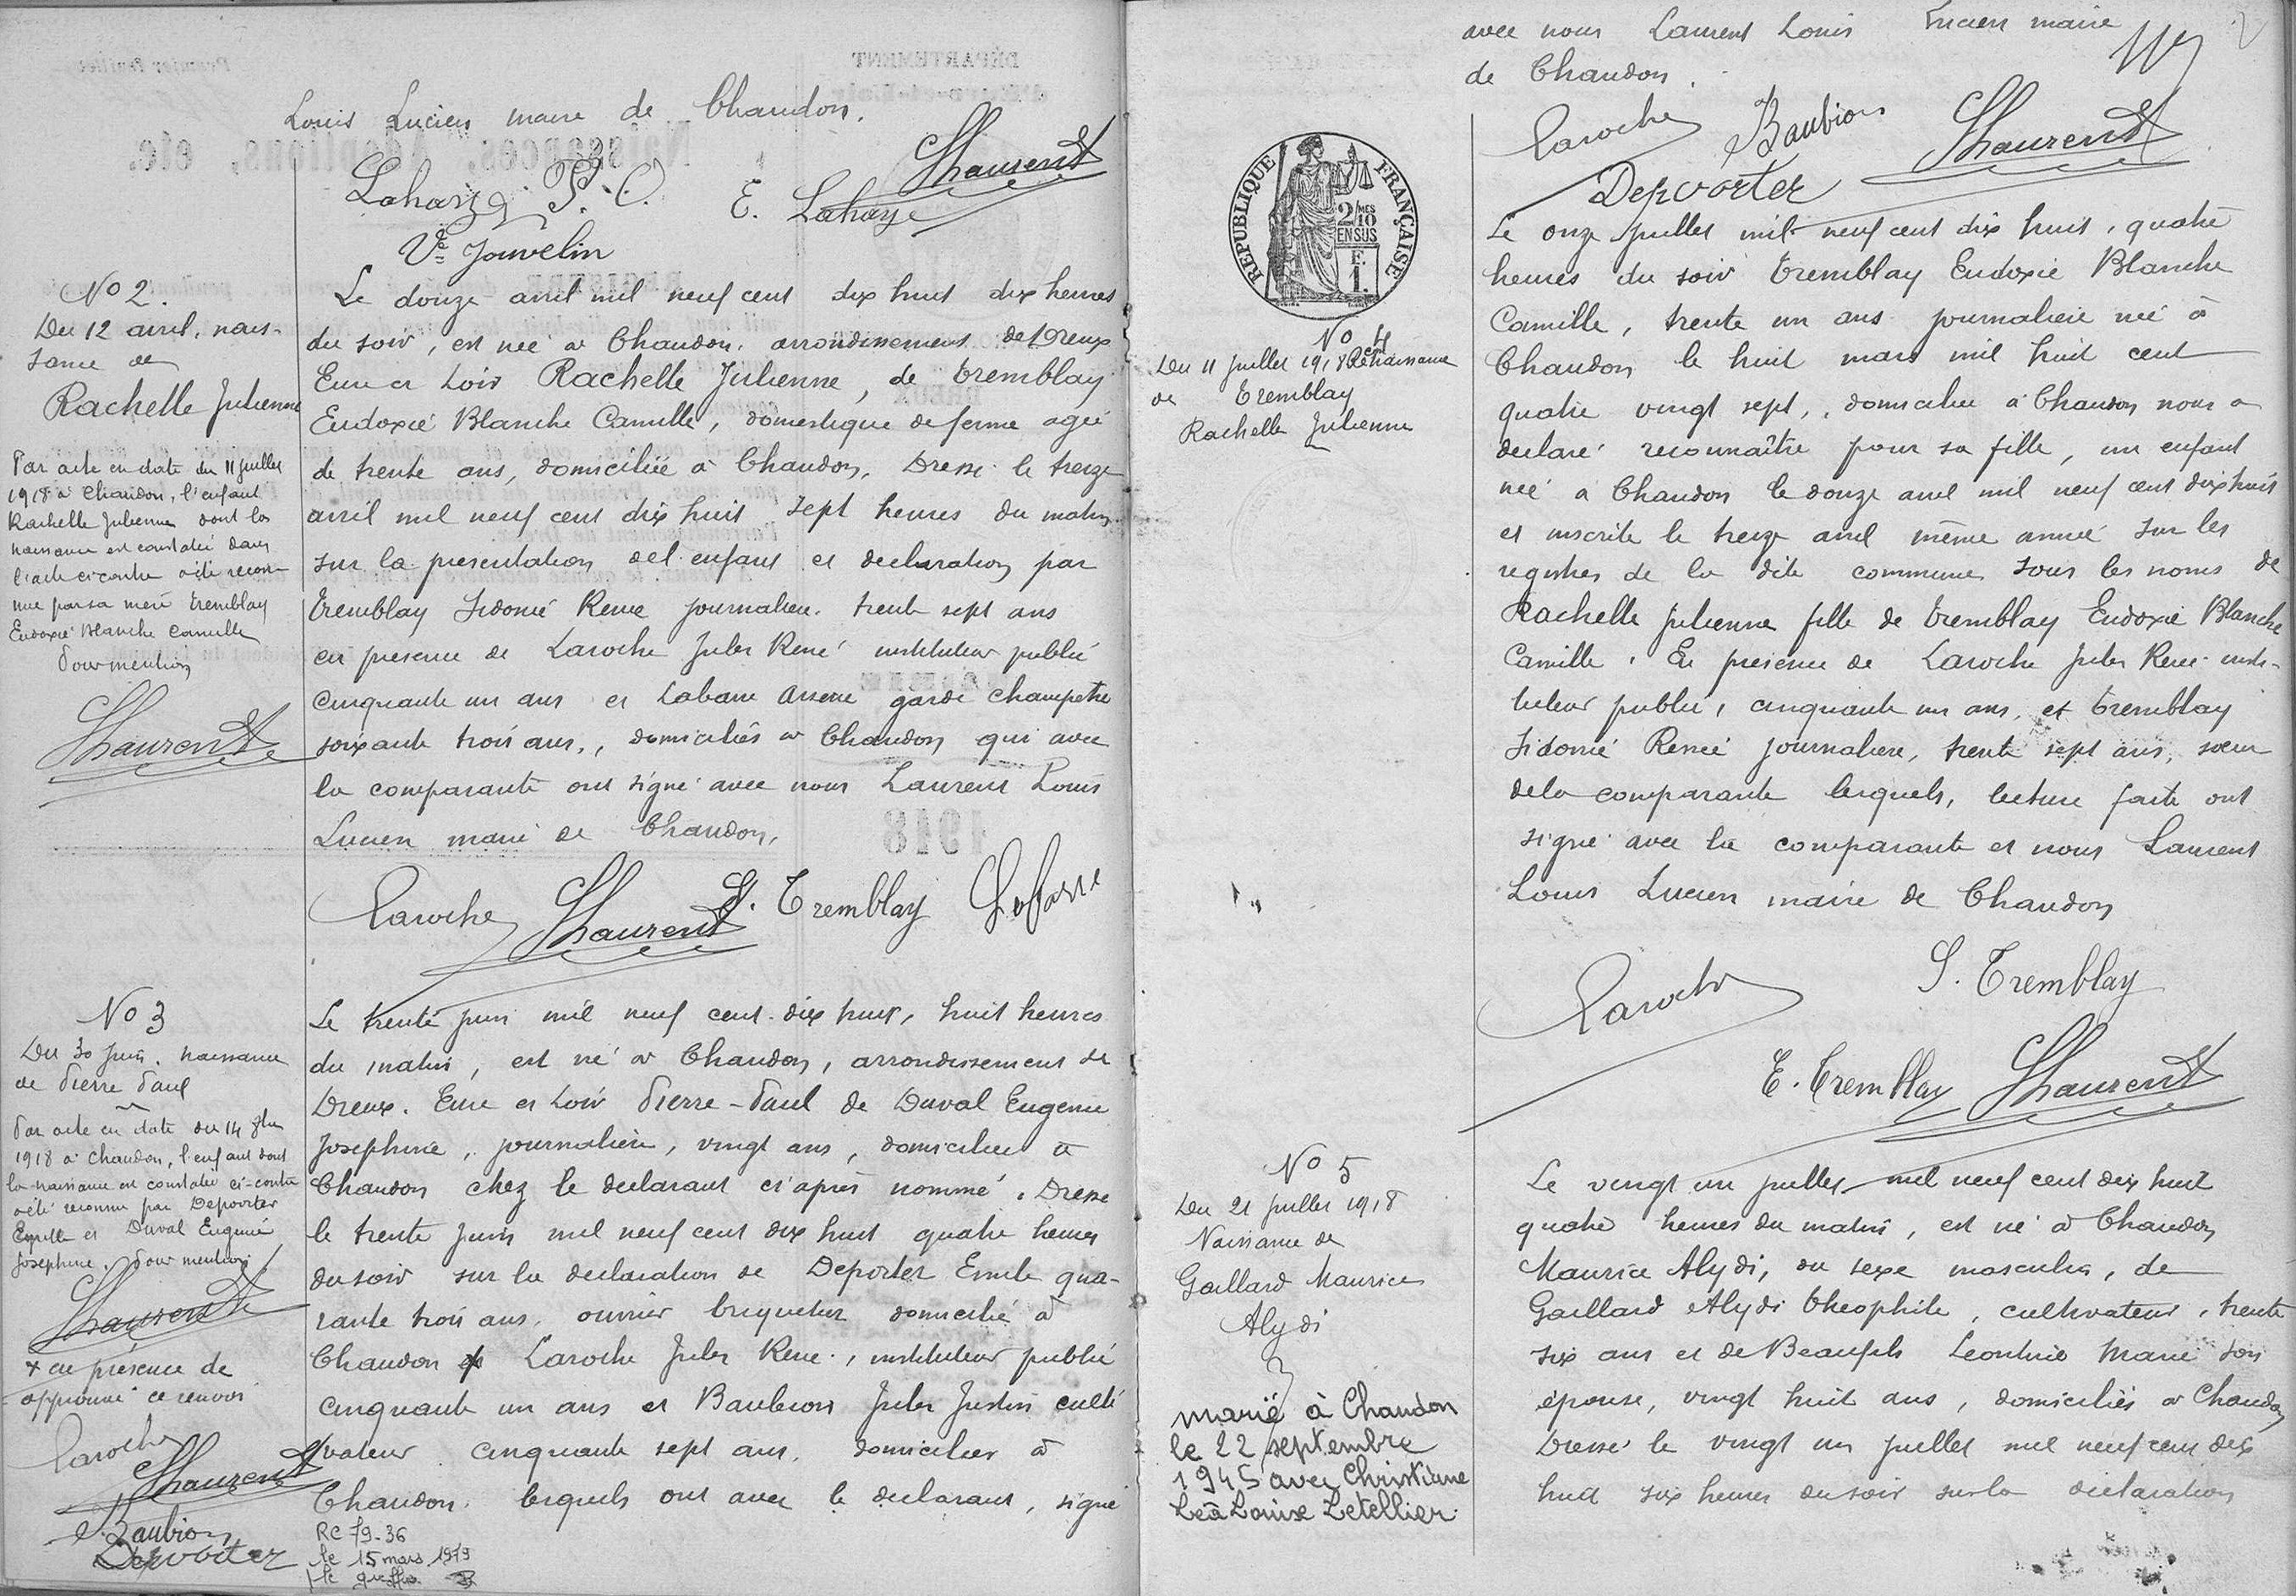 Louis Lucien maire de Chaudon.
LLaurent
E. Lahaye
Ve Jouvelin
No 2.
Du 12 avril, nais-
sance de
Rachelle Julienne
Par acte en date du 11 juillet
1918 à Chaudon, l'enfant
Rachelle Julienne dont la
naissance est constatée dans
l'acte ci contre a été recon-
nue par sa mère Tremblay
Eudoxie Blanche Camille
Pour mention
LLaurent
Le douze avril mil neuf cent dix huit dix heures
du soir, est née à Chaudon, arrondissement de Dreux
Eure et Loir Rachelle Julienne, de Tremblay
Eudoxie Blanche Camille, domestique de ferme agée
de trente ans, domiciliée à Chaudon. Dressé le treize
avril mil neuf cent dix huit sept heures du matin
sur la presentation de l'enfant et declaration par
Tremblay Sidonie Renée journalière trente sept ans
en presence de Laroche Jules René instituteur public
cinquante un ans et Labarre Arsène garde champetre
soixante trois ans, domiciliés à Chaudon qui avec
la comparante ont signé avec nous Laurent Louis
Lucien maire de Chaudon.
Laroche LLaurent S. Tremblay Labarre
No 3
Du 30 Juin. naissance
de Pierre Paul
Par acte en date du 14 8bre
1918 à Chaudon, l'enfant dont
la naissance est constatée ci-contre
a été reconnu par Deporter
Emile et Duval Eugénie
Josephine. Pour mention
LLaurent
+ en présence de
approuvé ce renvoi
Laroche
LLaurent
Baubion
Depoorter
Le trente juin mil neuf cent dix huit, huit heures
du matin, est né à Chaudon, arrondissement de
Dreux. Eure et Loir Pierre-Paul de Duval Eugenie
Josephine, journalière, vingt ans, domiciliée à
Chaudon chez le declarant ci après nommé. Dressé
le trente juin mil neuf cent dix huit quatre heures
du soir sur la declaration de Deporter Emile qua-
rante trois ans, ouvrier briquetier domicilié à
Chaudon + Laroche Jules René, instituteur public
cinquante un ans et Baubion Jules Justin culti
vateur cinquante sept ans, domiciliés à
Chaudon. lesquels ont avec le declarant, signé
RC 79-36
le 15 mars 1979
le greffier
avec nous Laurent Louis Lucien maire
de Chaudon.
Laroche Baubion LLaurent
Depoorter
REPUBLIQUE FRANÇAISE
2/10MES
EN SUS
F.
1.
No 4
Du 11 juillet 1918 Rećnaissance
de Tremblay
Rachelle Julienne
Le onze juillet mil neuf cent dix huit, quatre
heures du soir Tremblay Eudoxie Blanche
Camille, trente un ans journalière née à
Chaudon le huit mars mil huit cent
quatre vingt sept, domiciliée à Chaudon nous a
declaré reconnaître pour sa fille, un enfant
née à Chaudon le douze avril mil neuf cent dix huit
et inscrite le treize avril même année sur les
registres de la dite commune sous les noms de
Rachelle Julienne fille de Tremblay Eudoxie Blanche
Camille. En présence de Laroche Jules René insti-
tuteur public, cinquante un ans, et Tremblay
Sidonie Renée journalière, trente sept ans, sœur
de la comparante lesquels, lecture faite ont
signé avec la comparante et nous Laurent
Louis Lucien maire de Chaudon
Laroche S. Tremblay
E. Tremblay LLaurent
No 5
Du 21 juillet 1918
Naissance de
Gaillard Maurice
Alydi
marié à Chaudon
le 22 septembre
1945 avec Christiane
Léa Louise Letellier.
Le vingt un juillet mil neuf cent dix huit
quatre heures du matin, est né à Chaudon
Maurice Alydi, du sexe masculin, de
Gaillard Alydi Théophile, cultivateur, trente
six ans et de Beaufils Léontine Marie son
épouse, vingt huit ans, domiciliés à Chaudon
Dressé le vingt un juillet mil neuf cent dix
huit six heures du soir sur la déclaration